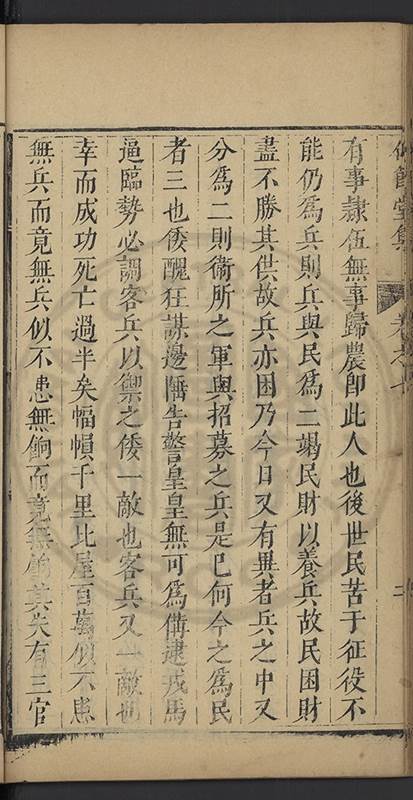 堂集 卷之十
有事隸伍無事歸農即此人也後世民苦于征役不
能仍爲兵則兵與民爲二竭民財以養兵故民困財
盡不勝其供故兵亦困乃今日又有異者兵之中又
分爲二則衛所之軍與招募之兵是已何今之爲民
者三也倭醜狂謀邊陲告警皇皇無可爲備逮戎馬
逼臨勢必調客兵以禦之倭一敵也客兵又一敵也
幸而成功死亡過半矣幅幀千里比屋百萬似不患
無兵而竟無兵似不患無餉而竟無餉其失有三官